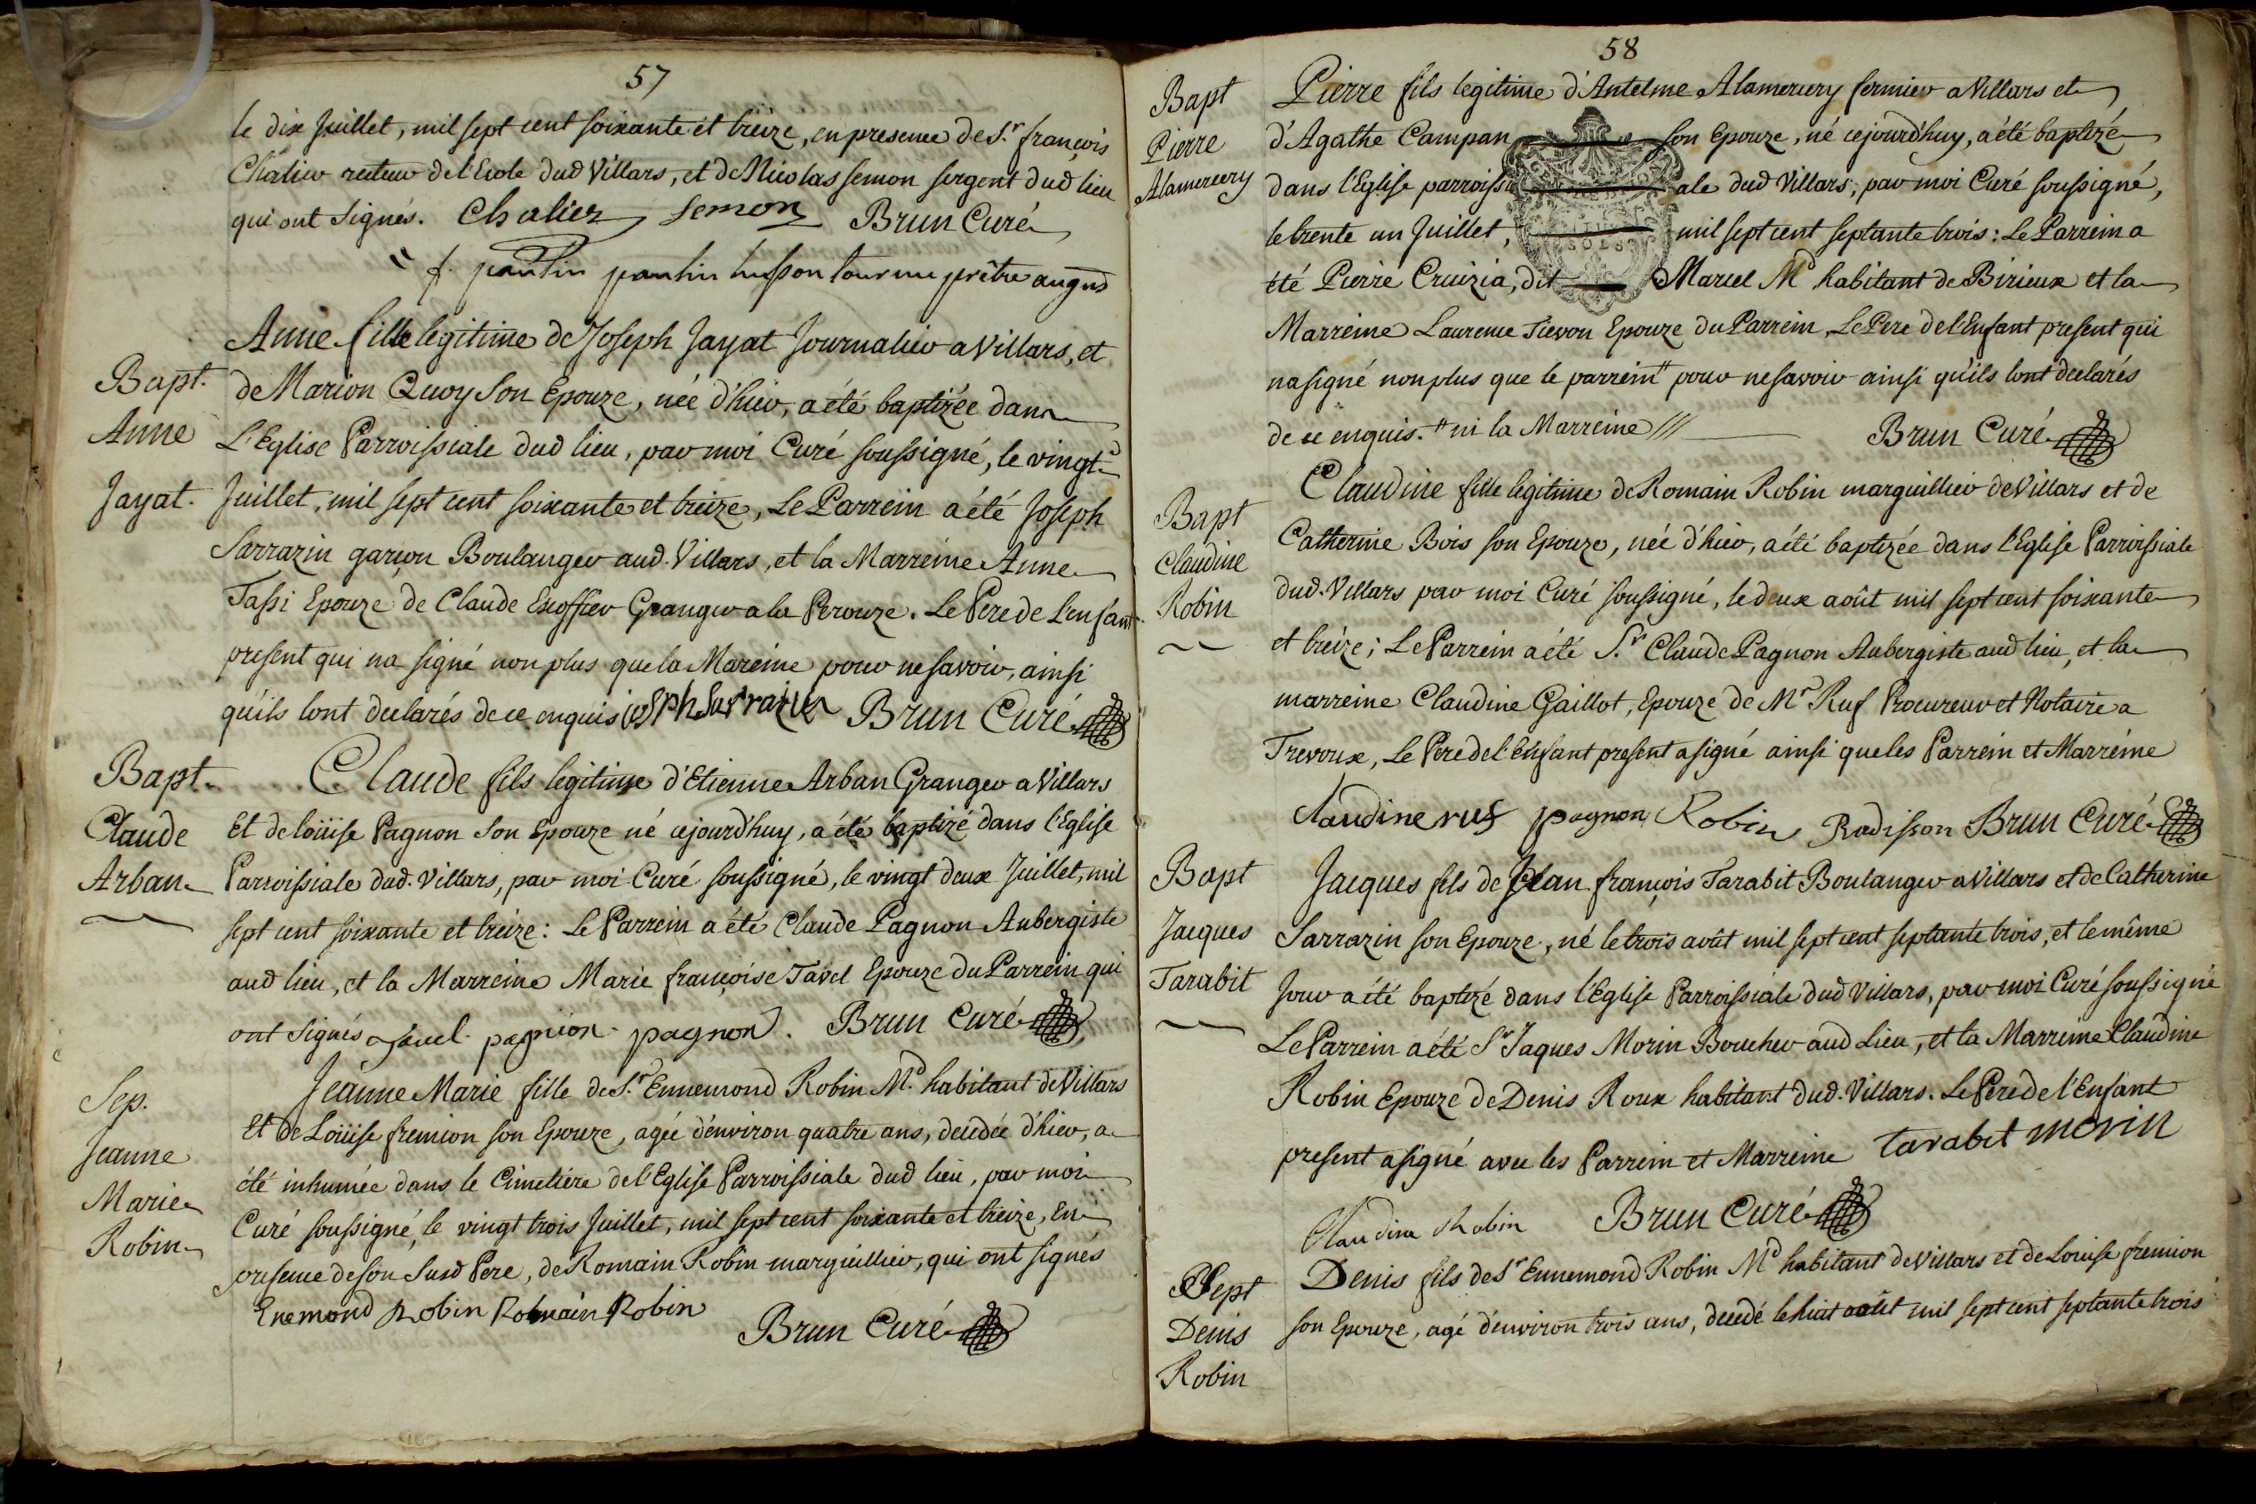 57
le dix Juillet, mil sept cent soixante et treize, en presence de Sr. françois
Chalier recteur de l'Ecole dud Villars, et de Nicolas semon sergent dud lieu
qui ont signés. Chalier Semon Brun Curé
f. paulin husson prêtre
Anne fille legitime de Joseph Jayat Journalier a Villars, et
Bapt. de Marion Quoy son Epouze, née d'hier, a été baptizée dans
Anne L'Eglise Parroissiale dud lieu, par moi Curé soussigné, le vingt
Jayat. Juillet, mil sept cent soixante et treize, Le Parrein a été Joseph
Sarrazin garçon Boulanger aud. Villars, et la Marreine Anne
Tassi Epouze de Claude Escoffier Granger a la Perouze. Le Pere de L'enfant
present qui na signé non plus que la Mareine pour ne savoir, ainsi
qu'ils lont declarés de ce enquis joseph Sarrazin Brun Curé
Bapt. Claude fils legitime d'Etienne Arban Granger a Villars
Claude Et de loüise Pagnon son Epouze né cejourd'huy, a été baptizé dans l'Eglise
Arban Parroissiale dud. Villars, par moi Curé soussigné, le vingt deux Juillet, mil
sept cent soixante et treize: Le Parrein a été Claude Pagnon Aubergiste
aud lieu, et la Marreine Marie françoise Tavel Epouze du Parrein qui
ont signés tavel pagnion pagnon. Brun Curé
Jeanne Marie fille de Sr. Ennemond Robin Md. habitant de Villars
Sep. Et de Loüise fremion son Epouze, agée d'environ quatre ans, decedée d'hier, a
Jeanne été inhumée dans le Cimetiére de l'Eglise Parroissiale dud lieu, par moi
Marie Curé soussigné, le vingt trois Juillet, mil sept cent soixante et treize, En
Robin presence de son Susd Pere, de Romain Robin marguillier, qui ont signés
Enemond Robin Romain Robin
Brun Curé
58
Bapt Pierre fils legitime d'Antelme Alamercery fermier a Villars et
Pierre d'Agathe Campan son Epouze, né cejourd'huy, a été baptizé
Alamercery dans l'Eglise parroissi ale dud Villars, par moi Curé soussigné,
le trente un Juillet, mil sept cent septante trois: Le Parrein a
été Pierre Cruizia, dit Marcel Md habitant de Birieux et la
Marreine Laurence Tievon Epouze du Parrein, Le Pere de l'Enfant present qui
na signé non plus que le parrein # pour ne savoir ainsi qu'ils lont declarés
de ce enquis. # ni la Marreine /// Brun Curé
Claudine fille legitime de Romain Robin marguillier de Villars et de
Bapt Catherine Bois son Epouze, née d'hier, a été baptizée dans l'Eglise Parroissiale
Claudine dud. Villars par moi Curé soussigné, le deux août mil sept cent soixante
Robin et treize; Le Parrein a été Sr. Claude Pagnon Aubergiste aud lieu, et la
marreine Claudine Gaillot, Epouze de Mr Ruf Procureur et Notaire a
Trevoux, Le Pere de l'Enfant present a signé ainsi que les Parrein et Marréine
Claudine ruf pagnon Robin Radisson Brun Curé
Bapt Jacques fils de Jean françois Tarabit Boulanger a Villars et de Catherine
Jacques Sarrazin son Epouze, né le trois août mil sept cent septante trois, et le même
Tarabit Jour a été baptizé dans l'Eglise Parroissiale dud Villars, par moi Curé soussigné
Le Parrein a été Sr Jaques Morin Boucher aud Lieu, et la Marreine Claudine
Robin Epouze de Denis Roux habitant dud. Villars. Le Pere de l'Enfant
present a signé avec les Parrein et Marreine Tarabit morin
Claudine Robin Brun Curé
Sept Denis fils de Sr Ennemond Robin Md habitant de Villars et de Louise fremion
Denis son Epouze, agé d'environ trois ans, decedé le huit août mil sept cent septante trois
Robin